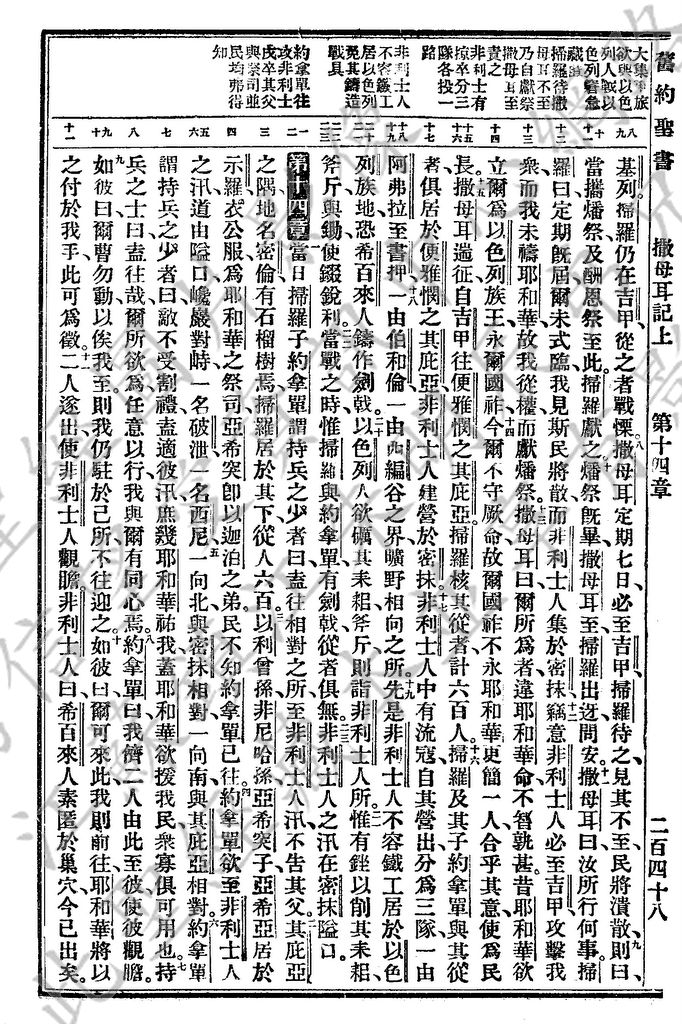 舊約聖書　撒母耳記上　第十四章　二百四十八
大集軍旅
欲與以色
列人戰以
色列警急
藏匿
掃羅待撒
母耳不至
乃自獻祭
撒母耳至
責之
非利士有
掠卒分三
隊各投一
路
非利士人
不容鐵工
居以色列
免其鑄造
戰具
約拿單往
攻非利士
戍卒其父
與祭司並
民均弗得
知
基列、掃羅仍在吉甲、從之者戰慄、八撒母耳定期七日必至吉甲、掃羅待之、見其不至、民將潰散、九則曰、
當攜燔祭及酬恩祭至此、掃羅獻之、十燔祭旣畢、撒母耳至、掃羅出迓問安、十一撒母耳曰、汝所行何事、掃
羅曰、定期旣屆、爾未式臨、我見斯民將散、而非利士人集於密抹、十二竊意非利士人必至吉甲攻擊我
衆、而我未禱耶和華、故我從權而獻燔祭、十三撒母耳曰、爾所爲者、違耶和華命、不智孰甚、昔耶和華欲
立爾爲以色列族王、永爾國祚、十四今爾不守厥命、故爾國祚不永、耶和華更簡一人、合乎其意、使爲民
長、十五撒母耳遄征、自吉甲往便雅憫之其庇亞、掃羅核其從者、計六百人、十六掃羅及其子約拿單與其從
者、俱居於便雅憫之其庇亞、非利士人建營於密抹、十七非利士人中有流寇、自其營出、分爲三隊、一由
阿弗拉至書押、十八一由伯和倫、一由西編谷之界、曠野相向之所、十九先是非利士人不容鐵工居於以色
列族地、恐希百來人鑄作劍戟、二十以色列人欲礪其耒耜斧斤、則詣非利士人所、二一惟有銼以削其耒耜
斧斤與鋤、使錣銳利、二二當戰之時、惟掃羅與約拿單有劍戟、從者俱無、二三非利士人之汛、在密抹隘口、
第十四章　一當日掃羅子約拿單謂持兵之少者曰、盍往相對之所、至非利士人汛、不告其父、二其庇亞
之隅、地名密倫、有石榴樹焉、掃羅居於其下、從人六百、三以利曾孫、非尼哈孫、亞希突子、亞希居於
示羅、衣公服、爲耶和華之祭司、亞希突卽以迦泊之弟、民不知約拿單已往、四約拿單欲至非利士人
之汛、道由隘口、巉巖對峙、一名破泄、一名西尼、五一向北、與密抹相對、一向南、與其庇亞相對、六約拿單
謂持兵之少者曰、敵不受割禮、盍適彼汛、庶幾耶和華祐我、蓋耶和華欲援我民、衆寡俱可用也、七持
兵之士曰、盍往哉、爾所欲爲、任意以行、我與爾有同心焉、八約拿單曰、我儕二人、由此至彼、使彼觀瞻、
九如彼曰、爾曹勿動以俟我至、則我仍駐於己所、不往迎之、十如彼曰、爾可來此、我則前往、耶和華將以
之付於我手、此可爲徵、十一二人遂出、使非利士人觀瞻、非利士人曰、希百來人素匿於巢穴、今已出矣、